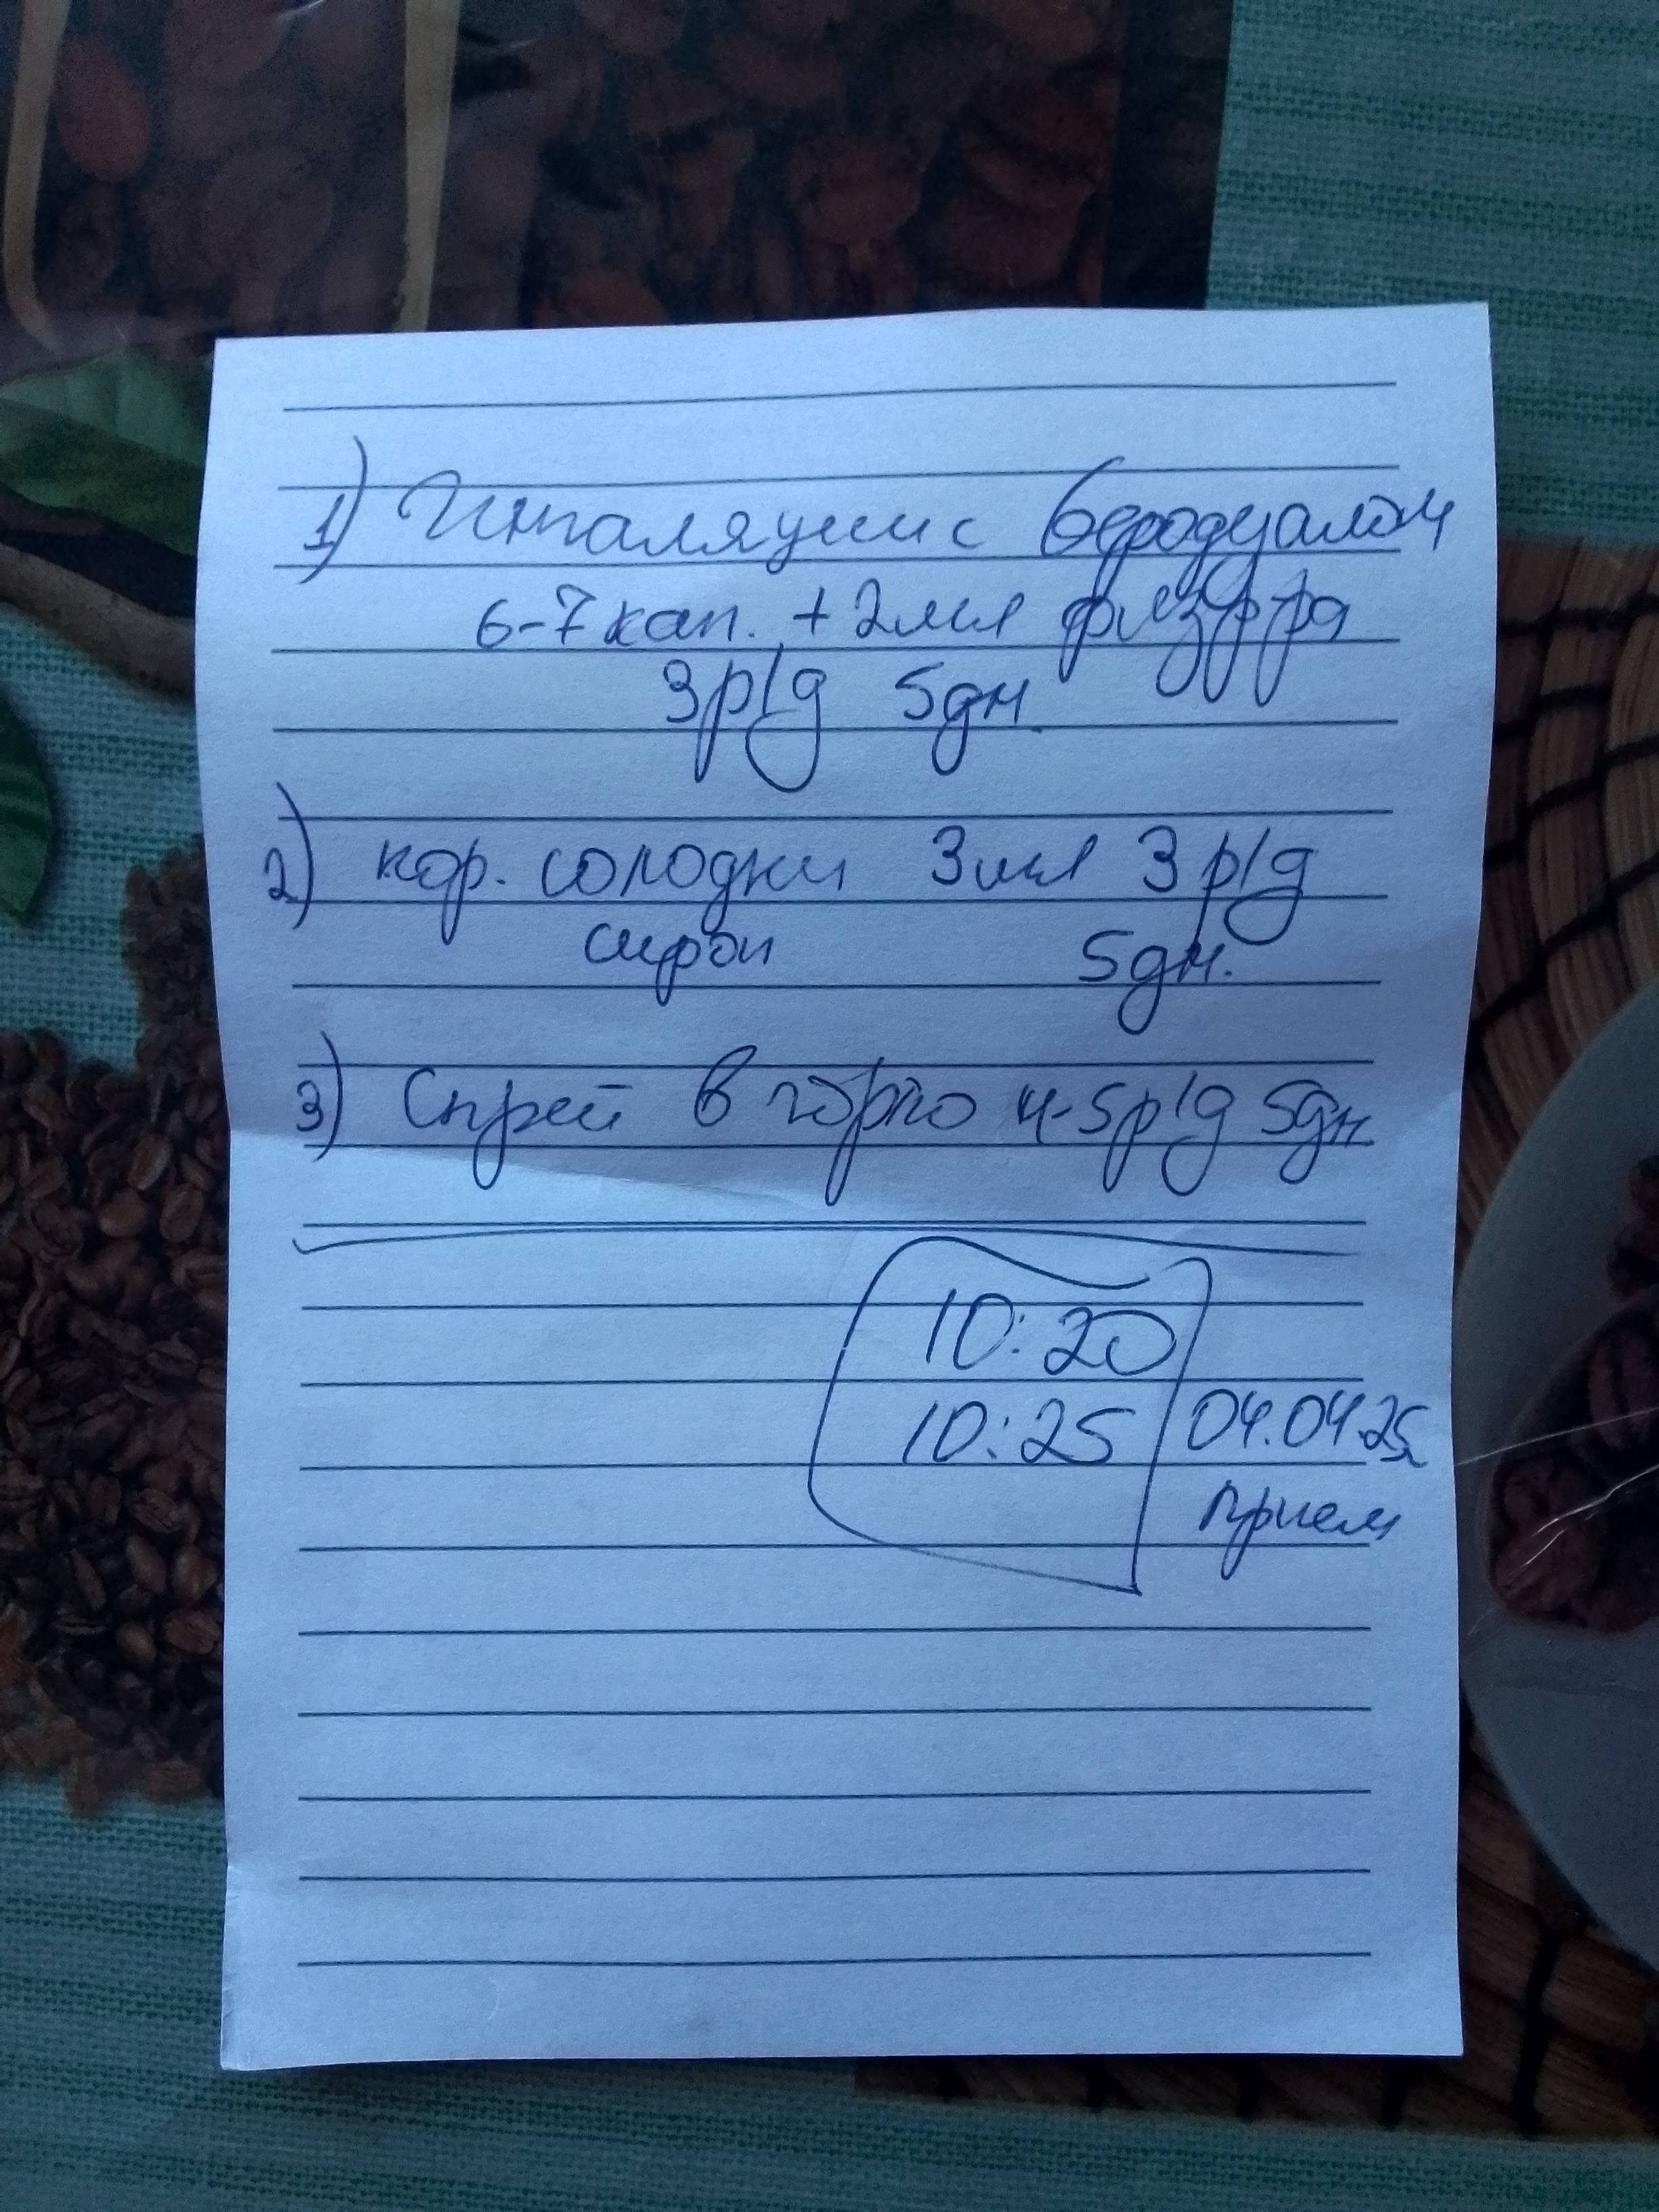 1) Ингаляции с беродуалом
6-7 кап. + 2 мл физр-ра
3 р/д 5 дн.
2) кор. солодки 3 мл 3 р/д
сироп 5 дн.
3) Спрей в горло 4-5 р/д 5 дн
10:20
10:25 04.04.25
прием